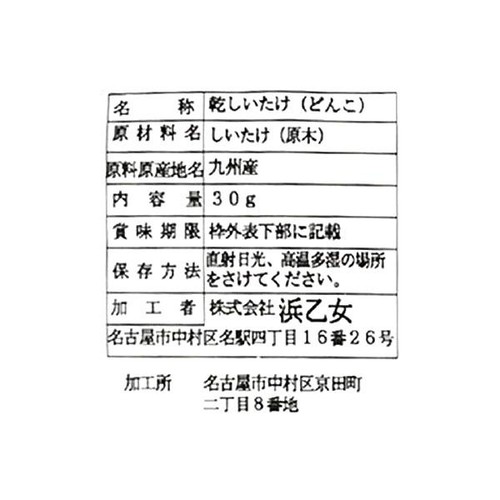 名称 乾しいたけ（どんこ）
原材料名 しいたけ（原木）
原料原産地名 九州産
内容量 30g
賞味期限 枠外表下部に記載
保存方法 直射日光、高温多湿の場所
をさけてください。
加工者 株式会社 浜乙女
名古屋市中村区名駅四丁目16番26号
加工所 名古屋市中村区京田町
二丁目8番地